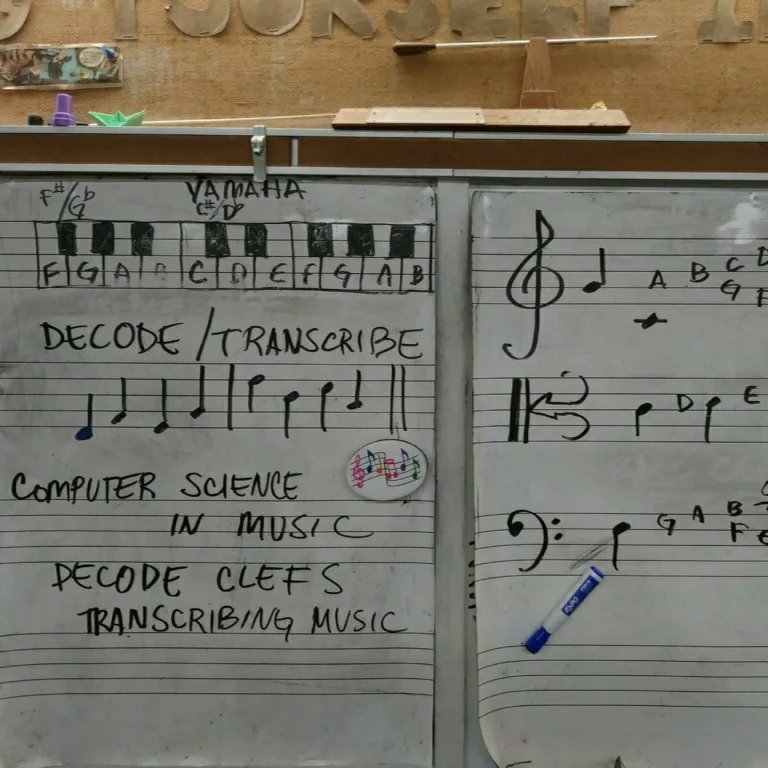 YOURSELF
F#/Gb
YAMAHA
C#/Db
F G A B C D E F G A B
DECODE/TRANSCRIBE
COMPUTER SCIENCE
IN MUSIC
DECODE CLEFS
TRANSCRIBING MUSIC
A B C D
G F
D E
G A B
F
EXPO